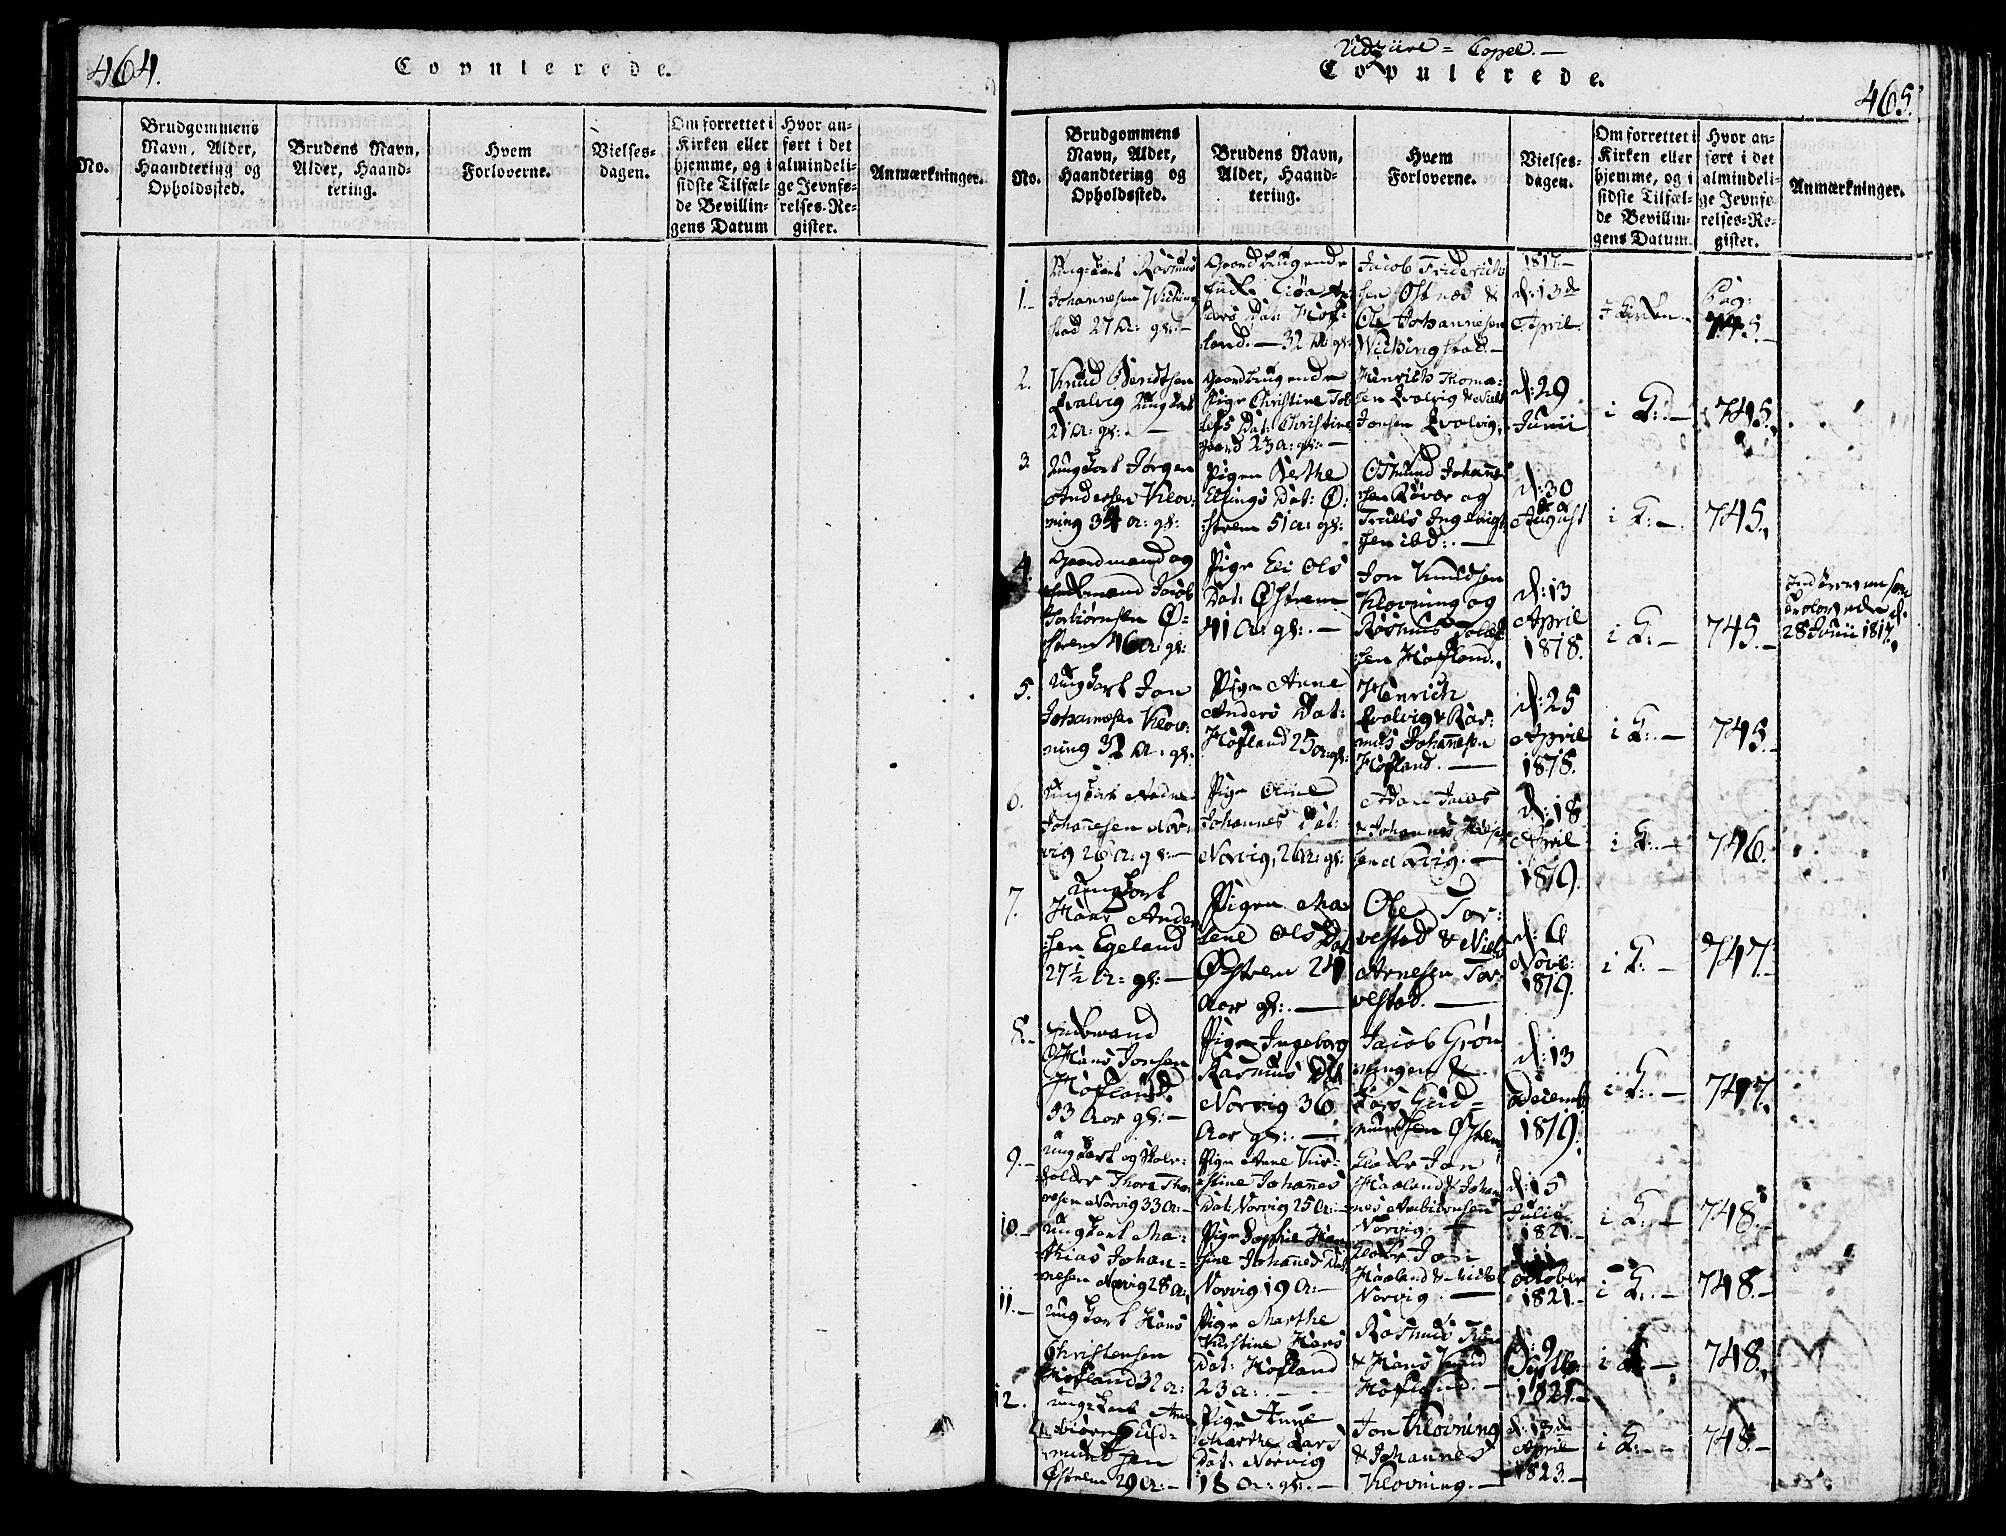 464.
Copulerede.
No.
Brudgommens
Navn, Alder,
Haandtering og
Opholdssted.
Brudens Navn,
Alder, Haand-
tering.
Hvem
Forloverne.
Vielses-
dagen.
Om forrettet i
Kirken eller
hjemme, og i
sidste Tilfæl-
de Bevillin-
gens Datum
Hvor an-
ført i det
almindeli-
ge Jevnfø-
relses-Re-
gister.
Anmærkninger.
Udzüre = Capel. —
Copulerede.
465.
No.
Brudgommens
Navn, Alder,
Haandtering og
Opholdssted.
Brudens Navn,
Alder, Haand-
tering.
Hvem
Forloverne.
Vielses-
dagen.
Om forrettet i
Kirken eller
hjemme, og i
sidste Tilfæl-
de Bevillin-
gens Datum
Hvor an-
ført i det
almindeli-
ge Jevnfø-
relses-Re-
gister.
Anmærkninger.
1.-
Ungkarl Rasmus
Johannesen Wiching
stad 27 Ar: gl: -
Gaardbrugende
Land. — 32 Ar: gl:
Jacob Friderich
sen Ostnes &
Ole Johannesen
Wichingstad. -
1817. -
d: 13de
April.
i Kirken.
Pag:
745. -
2.
Knud Bendtsen
Qvalvig Ungkarl
21 Ar: gl: . -
Gaardbrugende
Pige Christine Tol-
lefs Dat: Christine
gaard 23 a: gl: -
Henrich Thoma:
sen Qvalvig & Niels
Jonsen Qvalvig.
d: 29
Junii
i K: . -
745.
3.
Ungkarl Jørgen
Andersen Klov:
ning 34 a: gl:
Pigen Berthe
Ellings Dat: Ø:
strem 51 a: gl:
Osmund Johannes
sen Røvær og
Truels Ingebrigt
sen ibd: . -
d: 30
August
i K: -
745.
4.
Gaardmand og
Enkemand Jacob
Torbiørnsen Ø=
strem 46 a: gl:
Pige Eli Ols
Dat: Østrem
41 a: gl: . -
Jon Knudsen
Klovning og
Rasmus Tollef
sen Hafland.
d: 13
April
1818.
i K: -
745. -
28 Junii 1817.
5.
Ungkarl Jon
Johannesen Klov-
ning 32 Ar: gl:
Pigen Anne
Anders Dat:
Hafland 25 a: gl:
Henrich
Qvalvig & Ras-
mus Johannesen
Hafland. —
d: 25
April
1818.
i K: . -
745. -
6.
Ungkarl Aadne
Johannesen Nor-
vig 26 a: gl: -
Pige Oline
Johannes Dat:
Norvig, 26 a: gl:
Adan Jacobs
& Johannes
sen Norvig. -
d: 18
April
1819.
i K: . -
746.
7.
Ungkarl
Hans Ander
sen Egeland
27 1/2 Ar: gl: -
Pigen Ma
lene Ols Dat
Østrem 24
Aar gl: . —
Ole Tor:
vestad & Niels
Arnesen Tor:
vestad. —
d: 6
Novb:
1819.
i K: -
747. -
8. -
Enkemand
Hans Jonsen
Hafland.
53 Aar gl: -
Pige Ingeborg
Rasmus Dat
Norvig 36
Aar gl: . —
Jacob Grøn
ningen &
Lars Gud=
mundsen Østrem
d: 13
Decemb
1819.
i K: . -
747.
9. -
Ungkarl og Skole-
holder Thore Tho
resen Norvig 33 a: -
Pige Anne Kir-
stine Johannes
Dat: Norvig 25 a: -
Klokker Jon
Haaland & Johan
nes Anbiørnsen
Norvig. -
d: 15
Julii
1821. -
i K: -
748. -
10. -
Ungkarl Ma-
thias Johan-
nesen Norvig 28 a:
Pige Sophie Han
sine Johannes Dat:
Norvig 19 a: -
Klokker Jon
Haaland & Michel
Norvig. —
October
1821. -
i K: . -
748. -
11. -
Ungkarl Hans
Christensen
Hafland 32 a:
Pige Marthe
Kirstine Hans
Dat: Hafland
23 a: . -
Rasmus
& Hans Knud
Hafland. -
d: 9
Septb
1821. -
i K: -
748.
12.
Ungkarl Ann
biørn Gud-
mundsen
Østrem 29 a: -
Pige Anne
Marthe Lars
Dat: Norvig
18 a: gl: . -
Jon Klovning
& Johannes
Klovning. -
d. 13de
April
1823. -
i K: - -
748. -